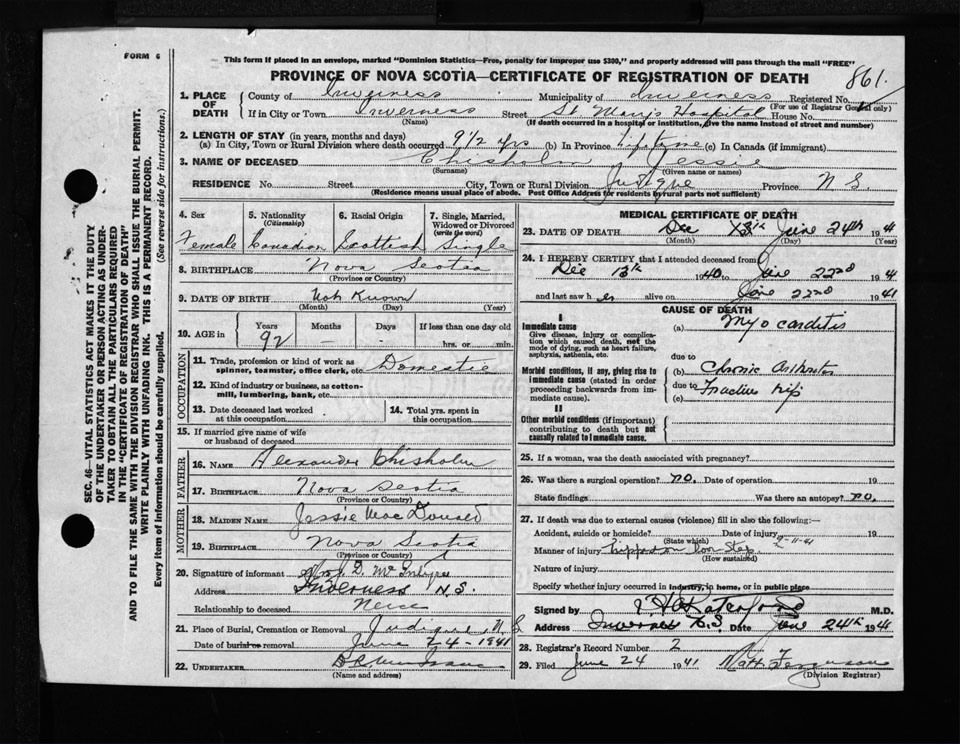 FORM 6
This form if placed in an envelope, marked "Dominion Statistics—Free, penalty for improper use $300," and properly addressed will pass through the mail "FREE"
PROVINCE OF NOVA SCOTIA—CERTIFICATE OF REGISTRATION OF DEATH
861.
1. PLACE OF DEATH
County of Inverness Municipality of Inverness Registered No.
(For use of Registrar General only)
If in City or Town Inverness Street St. Mary's Hospital House No.
(Name) (If death occurred in a hospital or institution, give the name instead of street and number)
2. LENGTH OF STAY (in years, months and days)
(a) In City, Town or Rural Division where death occurred 9 1/2 yrs (b) In Province lifetime (c) In Canada (if immigrant)
3. NAME OF DECEASED Chisholm Jessie
(Surname) (Given name or names)
RESIDENCE No. Street City, Town or Rural Division Judique Province N S
(Residence means usual place of abode. Post Office Address for residents by rural parts not sufficient)
4. Sex Female
5. Nationality (Citizenship) Canadian
6. Racial Origin Scottish
7. Single, Married, Widowed or Divorced (write the word) Single
8. BIRTHPLACE Nova Scotia
(Province or Country)
9. DATE OF BIRTH Not Known
(Month) (Day) (Year)
10. AGE in Years Months Days If less than one day old
92 — — hrs. or min.
OCCUPATION
11. Trade, profession or kind of work as spinner, teamster, office clerk, etc. Domestic
12. Kind of industry or business, as cotton-mill, lumbering, bank, etc.
13. Date deceased last worked at this occupation
14. Total yrs. spent in this occupation
15. If married give name of wife or husband of deceased
FATHER
16. NAME Alexander Chisholm
17. BIRTHPLACE Nova Scotia
MOTHER
18. MAIDEN NAME Jessie MacDonald
19. BIRTHPLACE Nova Scotia
(Province or Country)
20. Signature of informant D. McIntyre
Address Inverness N.S.
Relationship to deceased Neice
21. Place of Burial, Cremation or Removal Judique N S
Date of burial or removal June 24 - 1941
22. UNDERTAKER
(Name and address)
MEDICAL CERTIFICATE OF DEATH
23. DATE OF DEATH Dec June 24th 1941
(Month) (Day) (Year)
24. I HEREBY CERTIFY that I attended deceased from
Dec 13th 1940 to June 22nd 1941
and last saw h er alive on June 22nd 1941
CAUSE OF DEATH
I
Immediate cause
Give disease, injury or complication which caused death, not the mode of dying, such as heart failure, asphyxia, asthenia, etc.
(a) Myocarditis
due to
Morbid conditions, if any, giving rise to immediate cause (stated in order proceeding backwards from immediate cause).
(b) Chronic Arthritis
due to
(c) Fracture hip
II
Other morbid conditions (if important) contributing to death but not causally related to immediate cause.
25. If a woman, was the death associated with pregnancy?
26. Was there a surgical operation? no. Date of operation 19
State findings Was there an autopsy? no.
27. If death was due to external causes (violence) fill in also the following:
Accident, suicide or homicide? Date of injury 19
(State which)
Manner of injury
(How sustained)
Nature of injury
Specify whether injury occurred in industry, in home, or in public place
Signed by M.D.
Address Inverness N.S. Date June 24th 1941
28. Registrar's Record Number 2
29. Filed June 24 1941 Matt Ferguson
(Division Registrar)
SEC. 46—VITAL STATISTICS ACT MAKES IT THE DUTY
OF THE UNDERTAKER OR PERSON ACTING AS UNDER-
TAKER TO OBTAIN ALL THE PARTICULARS REQUIRED
IN THE "CERTIFICATE OF REGISTRATION OF DEATH"
AND TO FILE THE SAME WITH THE DIVISION REGISTRAR WHO SHALL ISSUE THE BURIAL PERMIT.
WRITE PLAINLY WITH UNFADING INK. THIS IS A PERMANENT RECORD.
Every item of information should be carefully supplied. (See reverse side for instructions.)